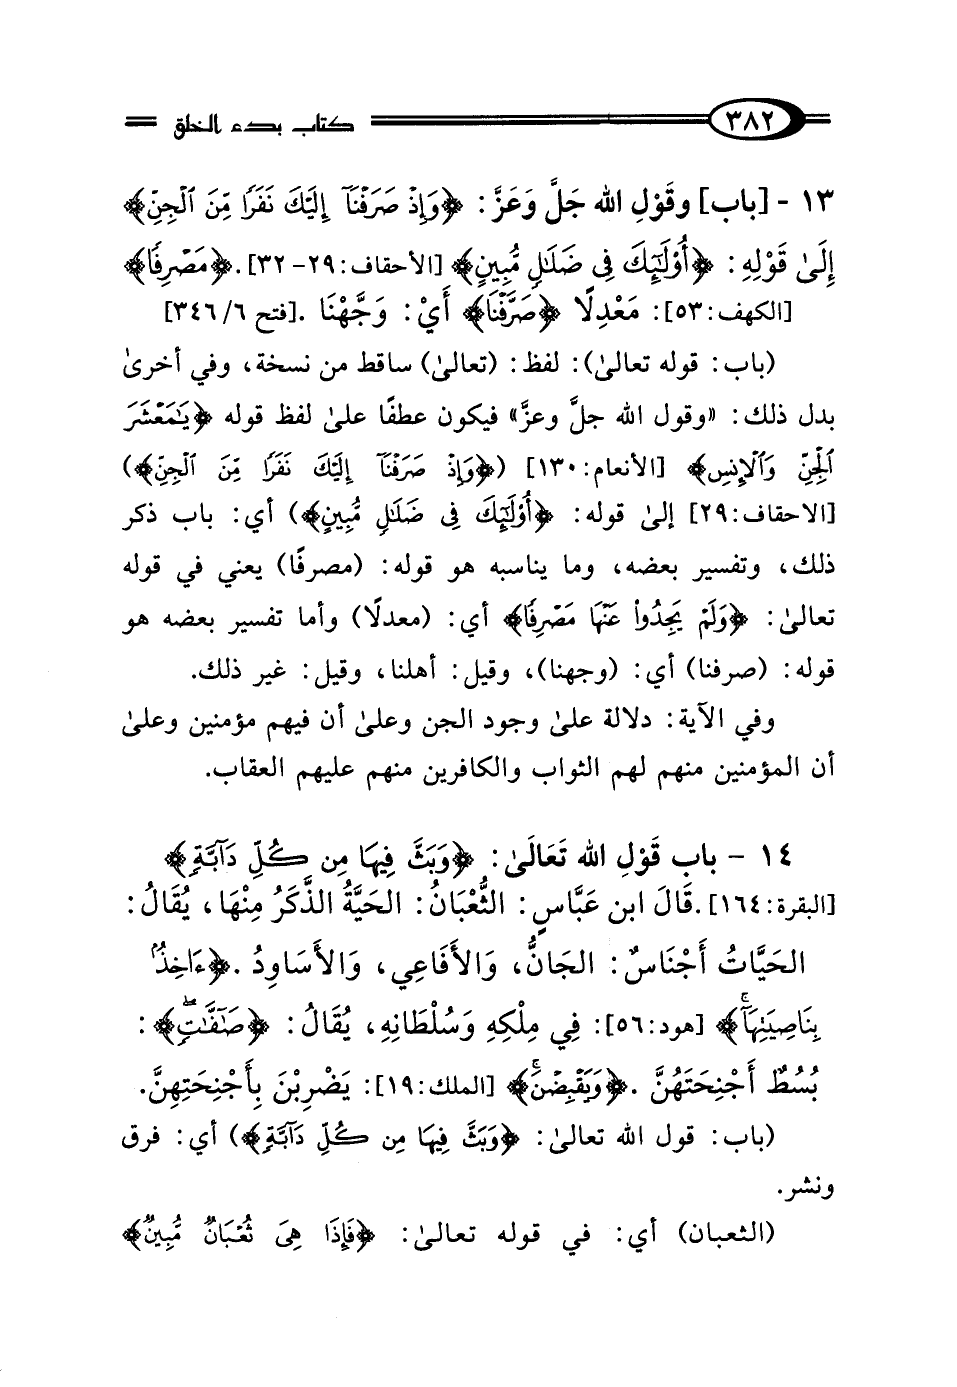 ٣٨٢ كتاب بدء الخلق
١٣ - [باب] وقَوْلِ الله جَلَّ وَعَزَّ: ﴿وَإِذْ صَرَفْنَآ إِلَيْكَ نَفَرًا مِّنَ ٱلْجِنِّ﴾
إِلَىٰ قَوْلِهِ: ﴿أُوْلَٰٓئِكَ فِى ضَلَٰلٍ مُّبِينٍ﴾ [الأحقاف: ٢٩- ٣٢]. ﴿مَصْرِفًا﴾
[الكهف: ٥٣]: مَعْدِلًا ﴿صَرَّفْنَا﴾ أَيْ: وَجَّهْنَا. [فتح ٦/ ٣٤٦]
(باب: قوله تعالىٰ): لفظ: (تعالىٰ) ساقط من نسخة، وفي أخرىٰ
بدل ذلك: «وقول الله جلَّ وعزَّ» فيكون عطفًا علىٰ لفظ قوله ﴿يَٰمَعْشَرَ
ٱلْجِنِّ وَٱلْإِنسِ﴾ [الأنعام: ١٣٠] (﴿وَإِذْ صَرَفْنَآ إِلَيْكَ نَفَرًا مِّنَ ٱلْجِنِّ﴾)
[الاحقاف: ٢٩] إلىٰ قوله: ﴿أُوْلَٰٓئِكَ فِى ضَلَٰلٍ مُّبِينٍ﴾) أي: باب ذكر
ذلك، وتفسير بعضه، وما يناسبه هو قوله: (مصرفًا) يعني في قوله
تعالىٰ: ﴿وَلَمْ يَجِدُوا۟ عَنْهَا مَصْرِفًا﴾ أي: (معدلًا) وأما تفسير بعضه هو
قوله: (صرفنا) أي: (وجهنا)، وقيل: أهلنا، وقيل: غير ذلك.
وفي الآية: دلالة علىٰ وجود الجن وعلىٰ أن فيهم مؤمنين وعلىٰ
أن المؤمنين منهم لهم الثواب والكافرين منهم عليهم العقاب.
١٤ - باب قَوْلِ الله تَعَالَىٰ: ﴿وَبَثَّ فِيهَا مِن كُلِّ دَآبَّةٍ﴾
[البقرة: ١٦٤]. قَالَ ابن عَبَّاسٍ: الثُّعْبَانُ: الحَيَّةُ الذَّكَرُ مِنْهَا، يُقَالُ:
الحَيَّاتُ أَجْنَاسٌ: الجَانُّ، وَالأَفَاعِي، وَالأَسَاوِدُ. ﴿ءَاخِذٌۢ
بِنَاصِيَتِهَآ﴾ [هود: ٥٦]: فِي مِلْكِهِ وَسُلْطَانِهِ، يُقَالُ: ﴿صَٰٓفَّٰتٍ﴾:
بُسُطٌ أَجْنِحَتَهُنَّ. ﴿وَيَقْبِضْنَ﴾ [الملك: ١٩]: يَضْرِبْنَ بِأَجْنِحَتِهِنَّ.
(باب: قول الله تعالىٰ: ﴿وَبَثَّ فِيهَا مِن كُلِّ دَآبَّةٍ﴾) أي: فرق
ونشر.
(الثعبان) أي: في قوله تعالىٰ: ﴿فَإِذَا هِىَ ثُعْبَانٌ مُّبِينٌ﴾